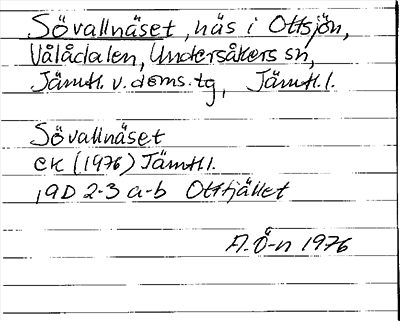 Sövallnäset, näs i Ottsjön,
Vålådalen, Undersåkers sn,
Jämtl. v. doms. tg, Jämtl. l.
Sövallnäset
ek (1976) Jämtl. l.
19D 2-3 a-b Ottfjället
A. Ö-n 1976